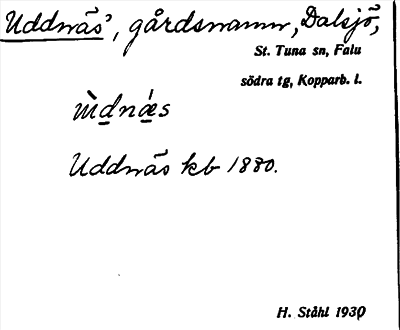 Uddnäs, gårdsnamn, Dalsjö,
St. Tuna sn, Falu
södra tg, Kopparb. l.
Uddnäs kb 1880.
H. Ståhl 1930